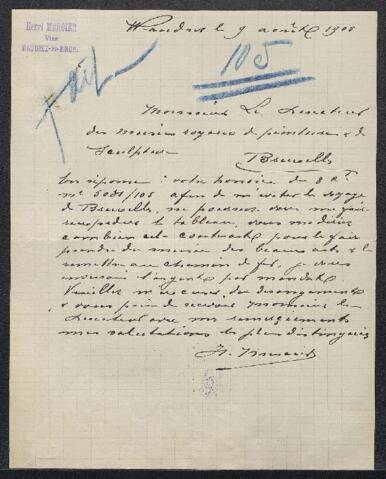 Henri MERCIER
Vins
Wandre le 9 août 1905
105
Monsieur Le Directeur
des musées royaux de peinture & de
Sculpture
Bruxelles
En réponse à votre honorée du 8 ct
n° 5081/105 afin de m'éviter le voyage
de Bruxelles, ne pourriez-vous me faire
le tableau, vous me direz
combien est pour le faire
prendre du musée des beaux arts & le
remettre au chemin de fer, je vous
l'argent par mandat
Veuillez m'excuser du dérangement
& vous prie de recevoir Monsieur le
Directeur avec mes remerciements
mes salutations les plus distinguées